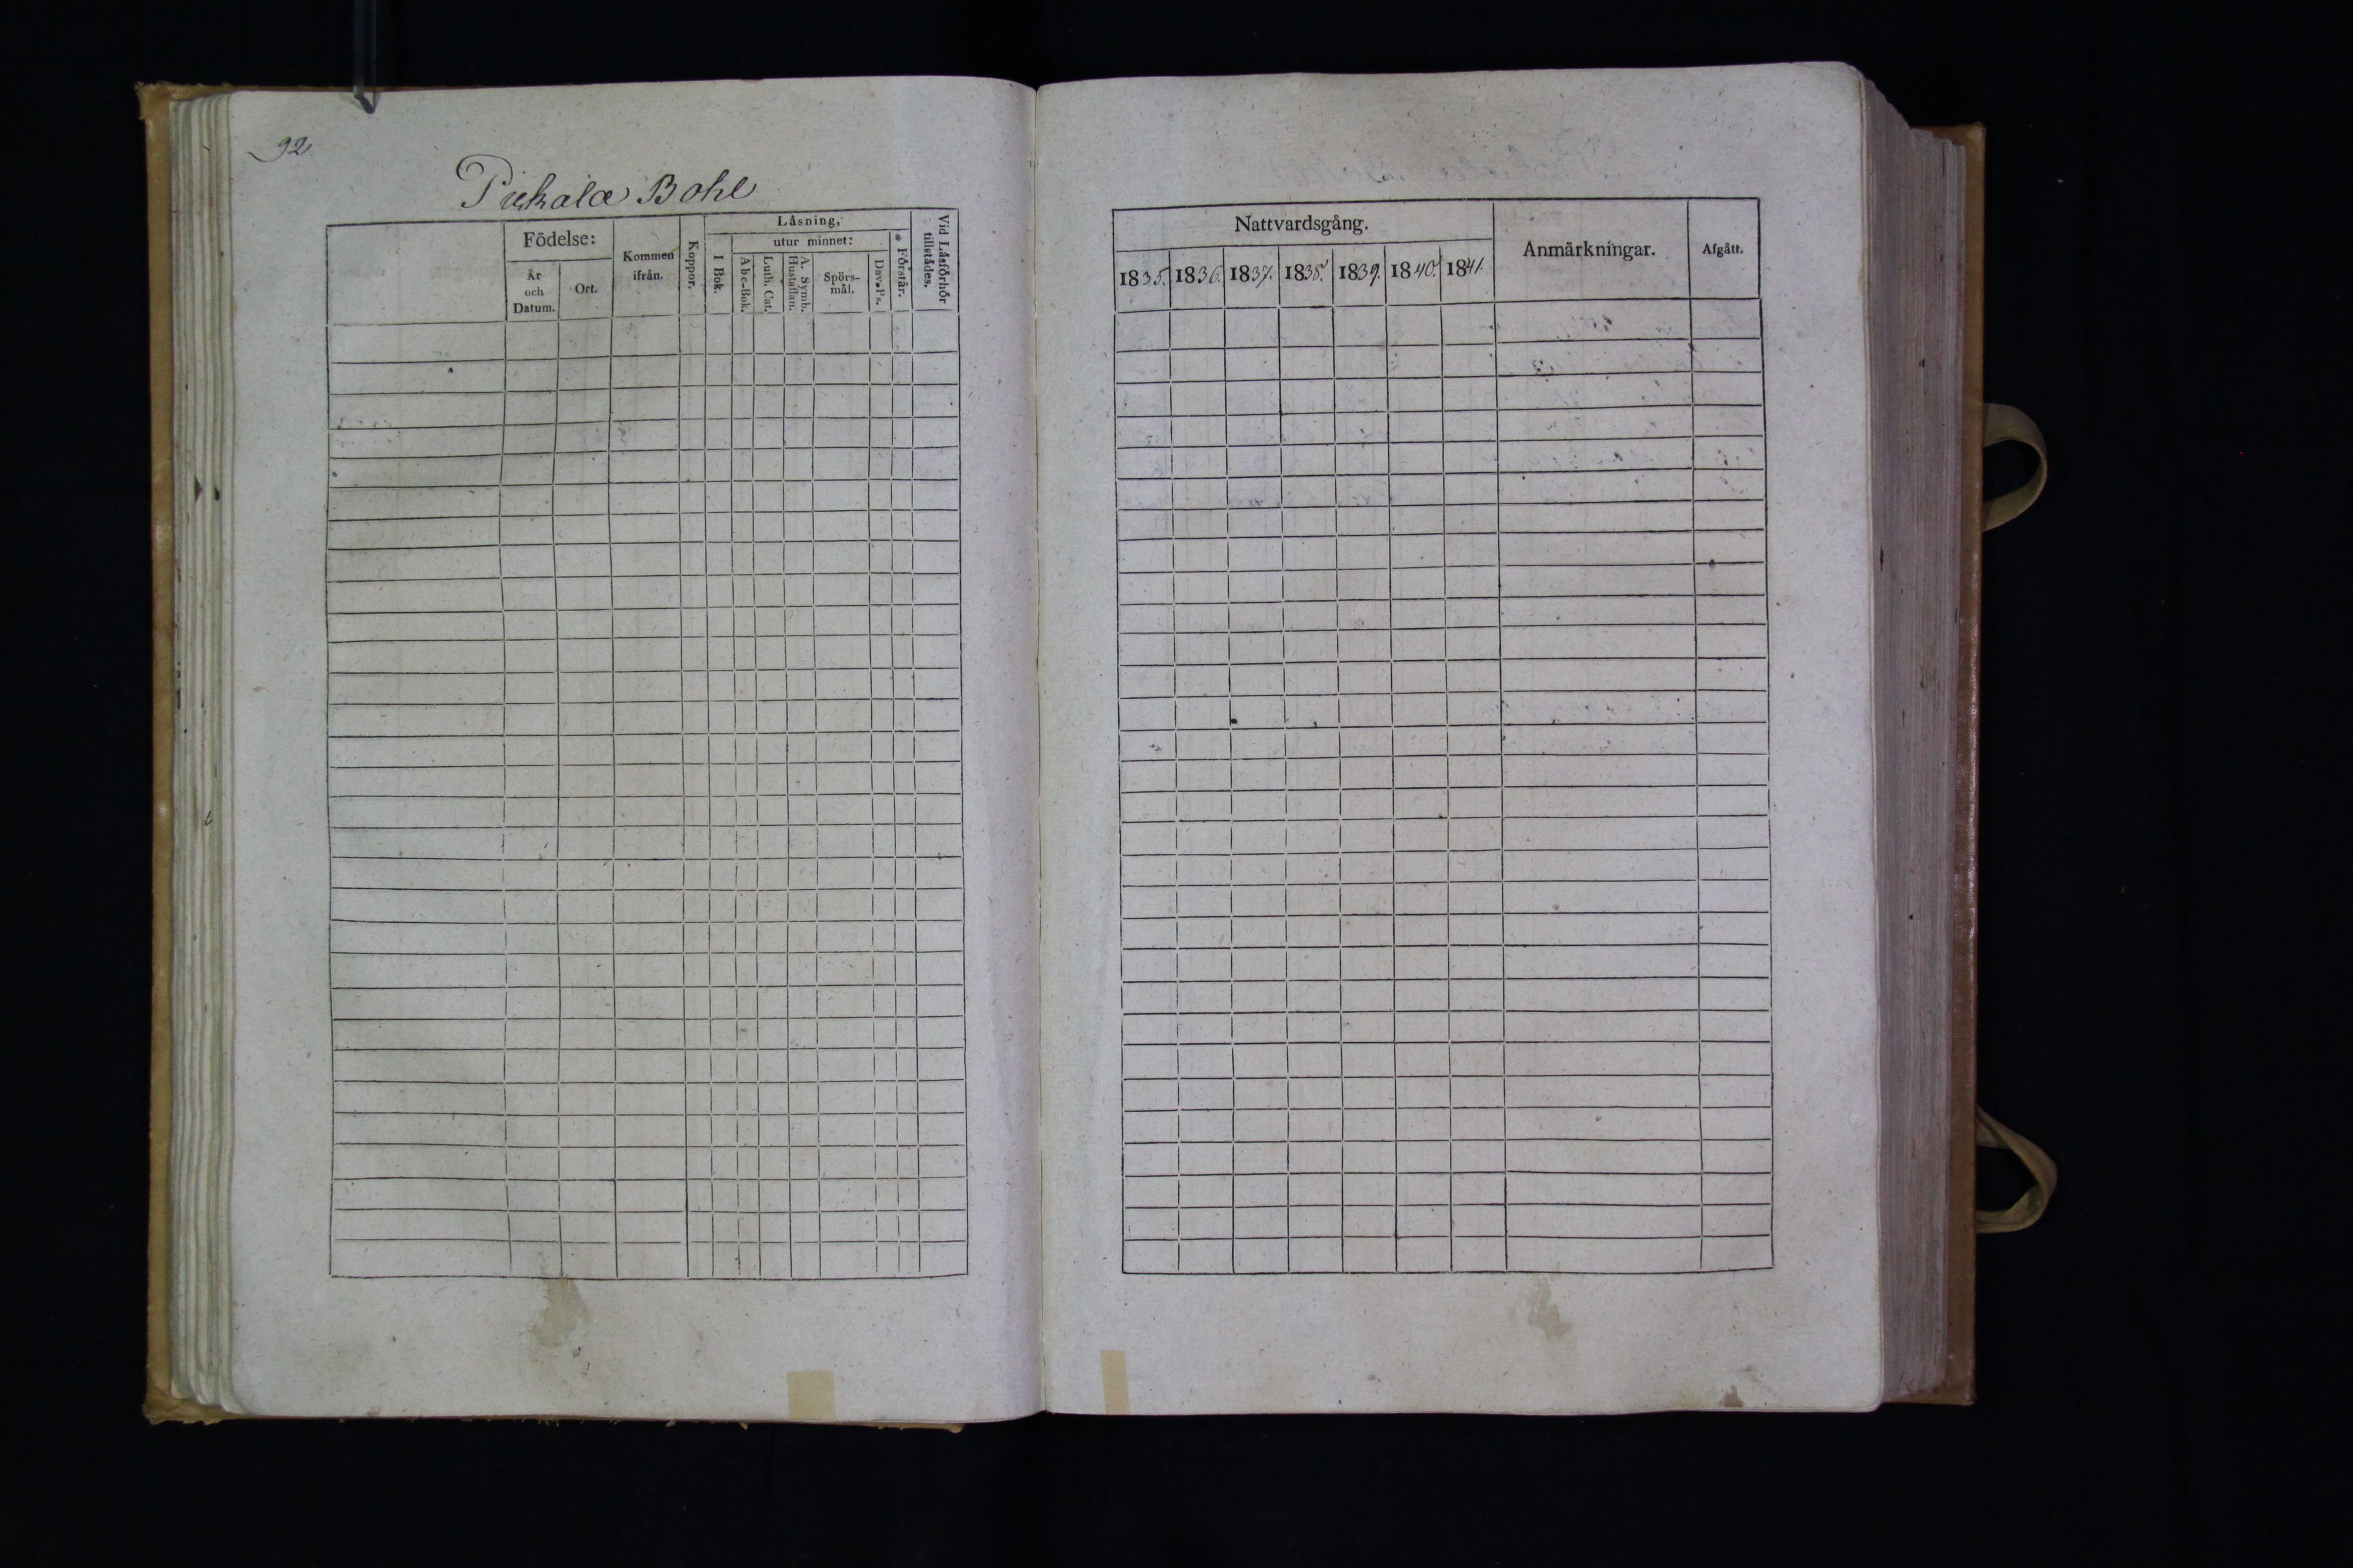 92
Pukala Bohl
Födelse:
År
och
Datum.
Ort.
Kommen
ifrån.
Koppor.
Läsning,
I Bok.
utur minnet:
Abc-Bok.
Luth. Cat.
A. Symb.
Hustaflan.
Spörs-
mål.
Dav. Ps.
Förstår.
Vid Läsförhör
tillstädes.
Nattvardsgång.
1835. 1836. 1837. 1838. 1839. 1840. 1841.
Anmärkningar.
Afgått.